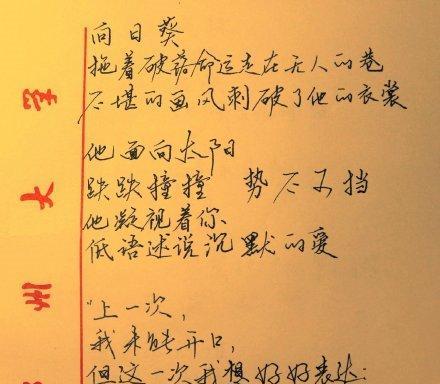 向日葵
拖着破落命运走在无人的巷
不堪的画风刺破了他的衣裳
他面向太阳
跌跌撞撞 势不可挡
他凝视着你
低语述说沉默的爱
"上一次,
我未能开口,
但这一次我想好好表达:
州大学